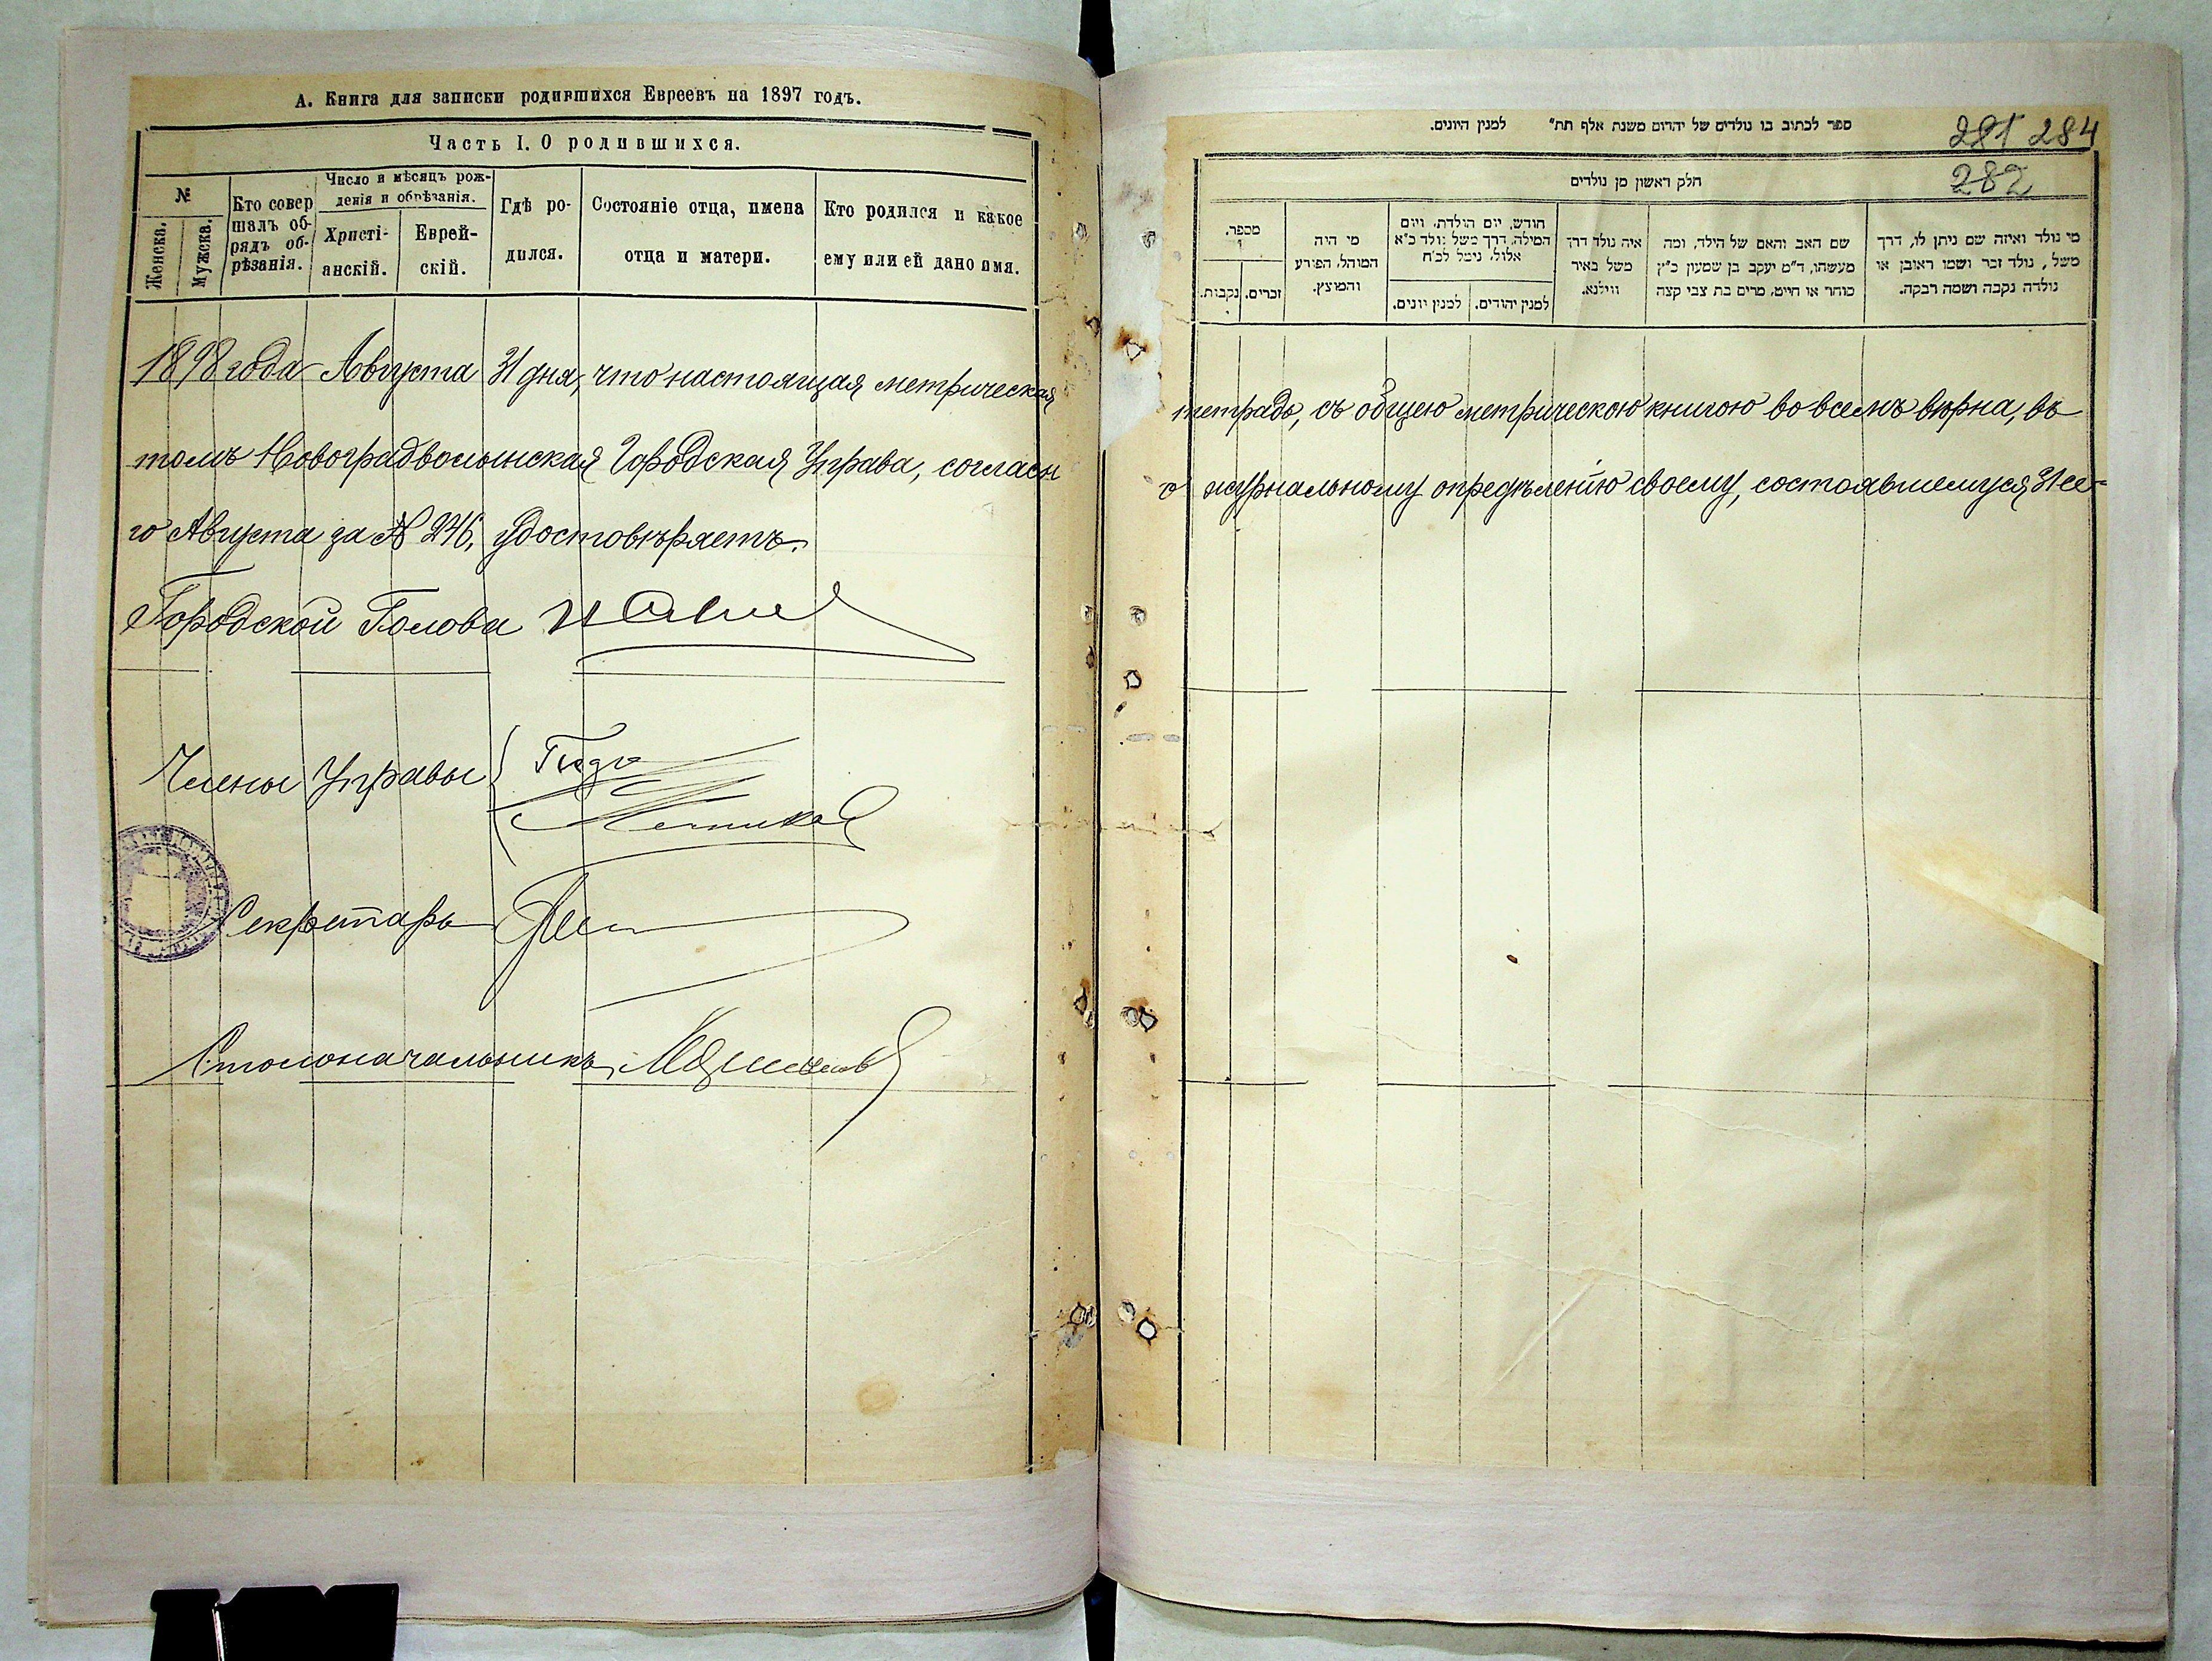 А. Книга для записки родившихся Евреевъ на 1897 годъ.
Часть I. О родившихся.
№
Женска.
Мужска.
Кто совер
шалъ об-
рядъ об-
рѣзанія.
Число и мѣсяцъ рож-
денія и обрѣзанія.
Христі-
анскій.
Еврей-
скій.
Гдѣ ро-
дился.
Состояніе отца, имена
отца и матери.
Кто родился и какое
ему или ей дано имя.
1898 года Августа 31 дня, что настоящая метрическая
томъ Новоградволынская Городская Управа, согласн
го Августа за № 246, удостовѣряетъ.
Городской Голова
Члены Управы
Секретарь
Столоначальникъ
ספר לכתוב בו נולדים של יהדום משנת אלף תת" למנין היונים.
281 284
282
חלק ראשון מן נולדים
מספר.
נקבות.
זכרים.
מי היה
המוהל, הפורע
והמוצץ.
חודש, יום הולדת, ויום
המילה, דרך משל נולד כ"א
אלול, נימל לכ"ח
למנין יונים.
למנין יהודים.
איה נולד דרך
משל באיר
ווילנא.
שם האב והאם של הילד, ומה
מעשהו, ד"מ יעקב בן שמעון כ"ץ
סוחר או חייט, מרים בת צבי קצה
מי נולד ואיזה שם ניתן לו, דרך
משל, נולד זכר ושמו ראובן או
נולדה נקבה ושמה רבקה.
тетрадь, съ общею метрическою книгою во всемъ вѣрна, въ
о журнальному опредѣленію своему, состоявшемуся 31 се-